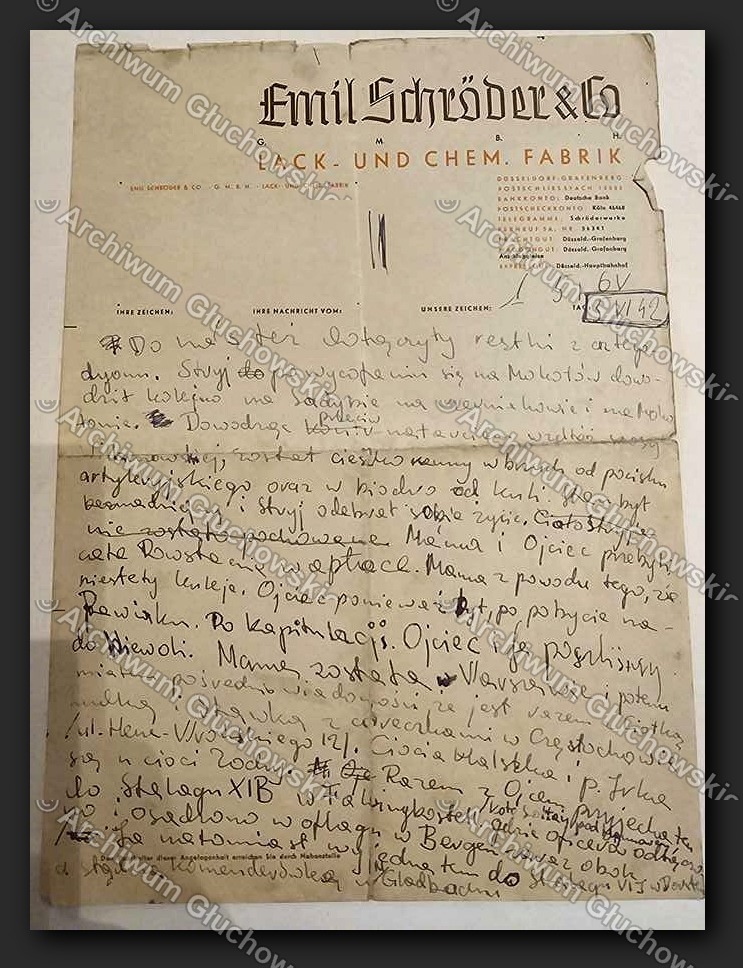 Emil Schröder & Co
G. M. B. H.
LACK- UND CHEM. FABRIK
EMIL SCHRÖDER & CO. · G. M. B. H. · LACK- UND CHEM. FABRIK
DÜSSELDORF-GRAFENBERG
POSTSCHLIESSFACH
BANKKONTO: Deutsche Bank
POSTSCHECKKONTO: Köln
TELEGRAMME: Schröderwerke
FERNRUF SA. NR. 36341
FRACHTGUT: Düsseld.-Grafenberg
Düsseld.-Grafenberg
Anschlußgleise
EXPRESSGUT: Düsseld.-Hauptbahnhof
IHRE ZEICHEN: IHRE NACHRICHT VOM: UNSERE ZEICHEN: TAG
VI 42
Do nas też dołączyły resztki z
dyonu. Stryj do po wycofaniu się na Mokotów dowo-
dził kolejno na Sadybie na Czerniakowie i na Moko
towie. Dowodząc przeciw natarciem wzdłuż szosy
został ciężko ranny w brzuch od pocisku
artyleryjskiego oraz w biodro od kuli. był
beznadziejny i Stryj odebrał sobie życie. Ciało Stryja
nie zostało pochowane Mama i Ojciec przebyli
całe Powstanie w aptece. Mama z powodu tego, że
niestety kuleje. Ojciec ponieważ był, po pobycie na
Pawiaku. Po kapitulacji Ojciec i ja poszliśmy
do niewoli. Mama została w Warszawie i potem
miałem pośrednio wiadomości że jest razem z Ciotką
i Sławką z córeczkami w Częstochowie
/ul. Hene-Wrońskiego 12/. Ciocia Halszka i p. Irka
są u cioci Zochy. Razem z Ojcem przyjechałem
do Stalagu XIB w Falingbostel gdzie oficerów
no i osadzono w oflagu w Bergen oraz obok
Ja natomiast wyjechałem do Stalagu VI J w
Den Bearbeiter dieser Angelegenheit erreichen Sie durch Nebenstelle
a stąd na komenderówkę w Gladbachu
© Archiwum Głuchowskich